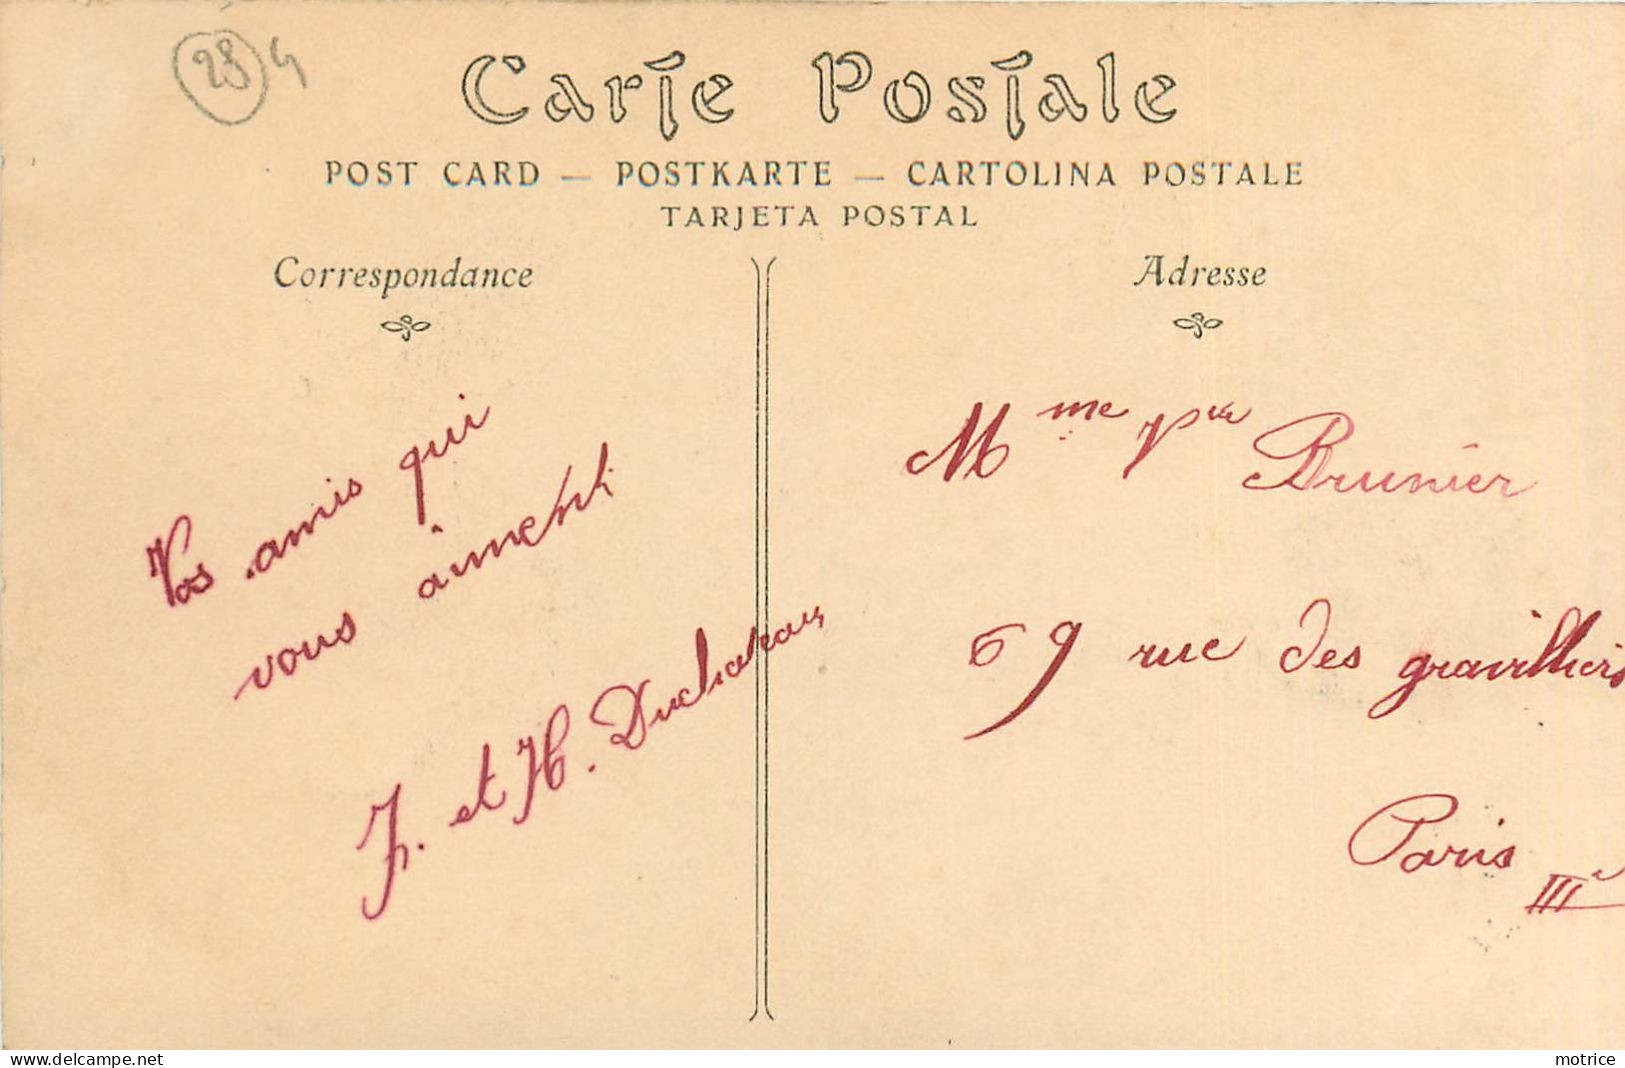 28 4
Carte Postale
POST CARD — POSTKARTE — CARTOLINA POSTALE
TARJETA POSTAL
Correspondance
Vos amis qui
vous aiment
J. et H. Duchateau
Adresse
Mme Vve Brunier
69 rue des gravilliers
Paris
IIIe
www.delcampe.net
motrice